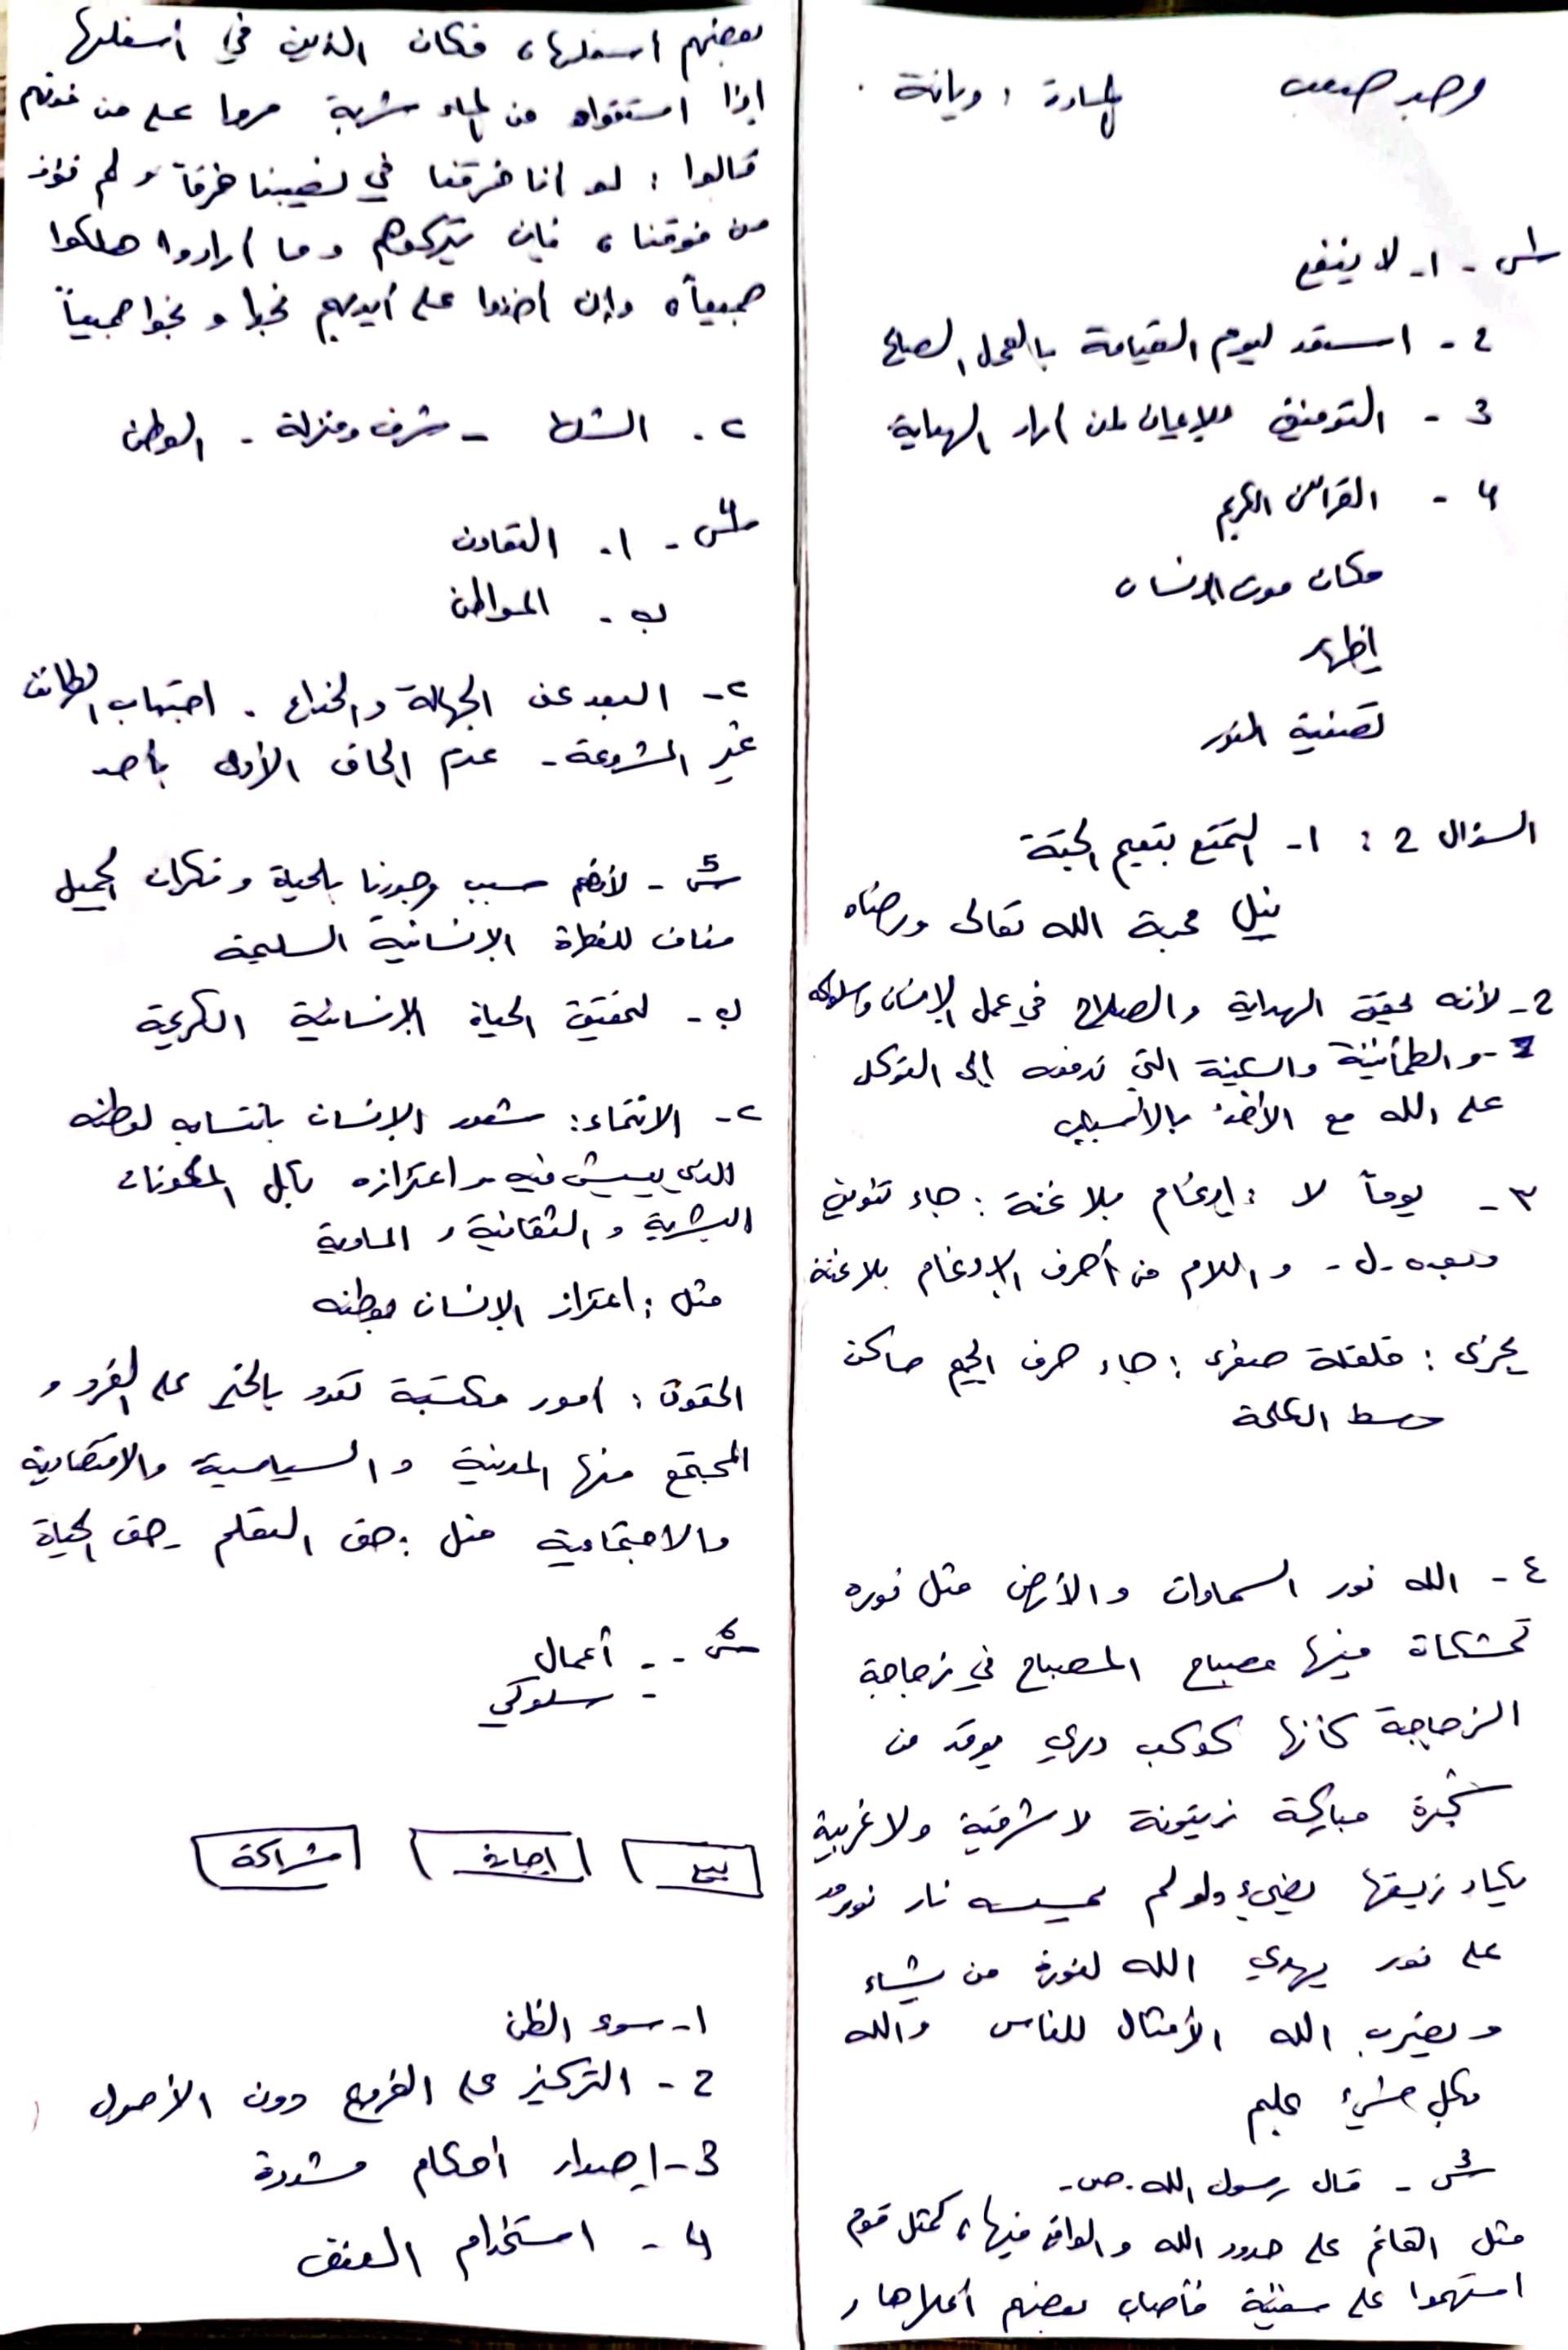 وجد صعب المادة : ديانة .
س1 - 1- لا ينفع
2 - استعد ليوم القيامة بالعمل الصالح
3 - التوفيق للإيمان لمن اراد الهداية
4 - القرآن الكريم
مكان موت الانسان
إظهار
تصفية النور
السؤال 2 : 1- التمتع بنعيم الجنة
نيل محبة الله تعالى ورضاه
2- لأنه يحقق الهداية والصلاح في عمل الإنسان وسلوكه
- والطمأنينة والسكينة التي تدفعه إلى التوكل
على الله مع الأخذ بالأسباب
٣ - يوماً لا : إدغام بلا غنة : جاء تنوين
وبعده - ل - و اللام من أحرف الإدغام بلا غنة
يجزى : قلقلة صغرى : جاء حرف الجيم ساكن
وسط الكلمة
٤ - الله نور السماوات والأرض مثل نوره
كمشكاة فيها مصباح المصباح في زجاجة
الزجاجة كأنها كوكب دري يوقد من
شجرة مباركة زيتونة لا شرقية ولا غربية
يكاد زيتها يضيء ولو لم تمسسه نار نور
على نور يهدي الله لنوره من يشاء
ويضرب الله الأمثال للناس والله
بكل شيء عليم
س3 - قال رسول الله -ص-
مثل القائم على حدود الله والواقع فيها، كمثل قوم
استهموا على سفينة فأصاب بعضهم أعلاها و
بعضهم اسفلها، فكان الذين في أسفلها
إذا استقوا من الماء شربة مروا على من فوقهم
قالوا : لو انا خرقنا في نصيبنا خرقاً ولم نؤذ
من فوقنا، فإن يتركوهم وما ارادوا هلكوا
جميعاً، وإن أخذوا على أيديهم نجوا ونجوا جميعاً
٢ . - شرف ومنزلة - الوطن
س4 - 1. التعاون
ب . المواطن
٢- البعد عن الجهالة والخداع . اجتناب الطرائق
غير المشروعة - عدم إلحاق الأذى بأحد
س5 - لأنهم سبب وجودنا بالحياة ونكران الجميل
مناف للفطرة الإنسانية السليمة
ب - لتحقيق الحياة الإنسانية الكريمة
٢- الانتماء : شعور الإنسان بانتسابه لوطنه
الذي يعيش فيه واعتزازه بكل المكونات
البشرية و الثقافية و المادية
مثل : اعتزاز الإنسان بوطنه
الحقوق : امور مكتسبة تعود بالخير على الفرد و
المجتمع منها المدنية و السياسية والاقتصادية
والاجتماعية مثل : حق التعلم - حق الحياة
س6 - - أعمال
- سلوكي
بيع إجارة مشاركة
1- سوء الظن
2 - التركيز على الفروع دون الأصول
3- إصدار أحكام مشددة
4 - استخدام العنف